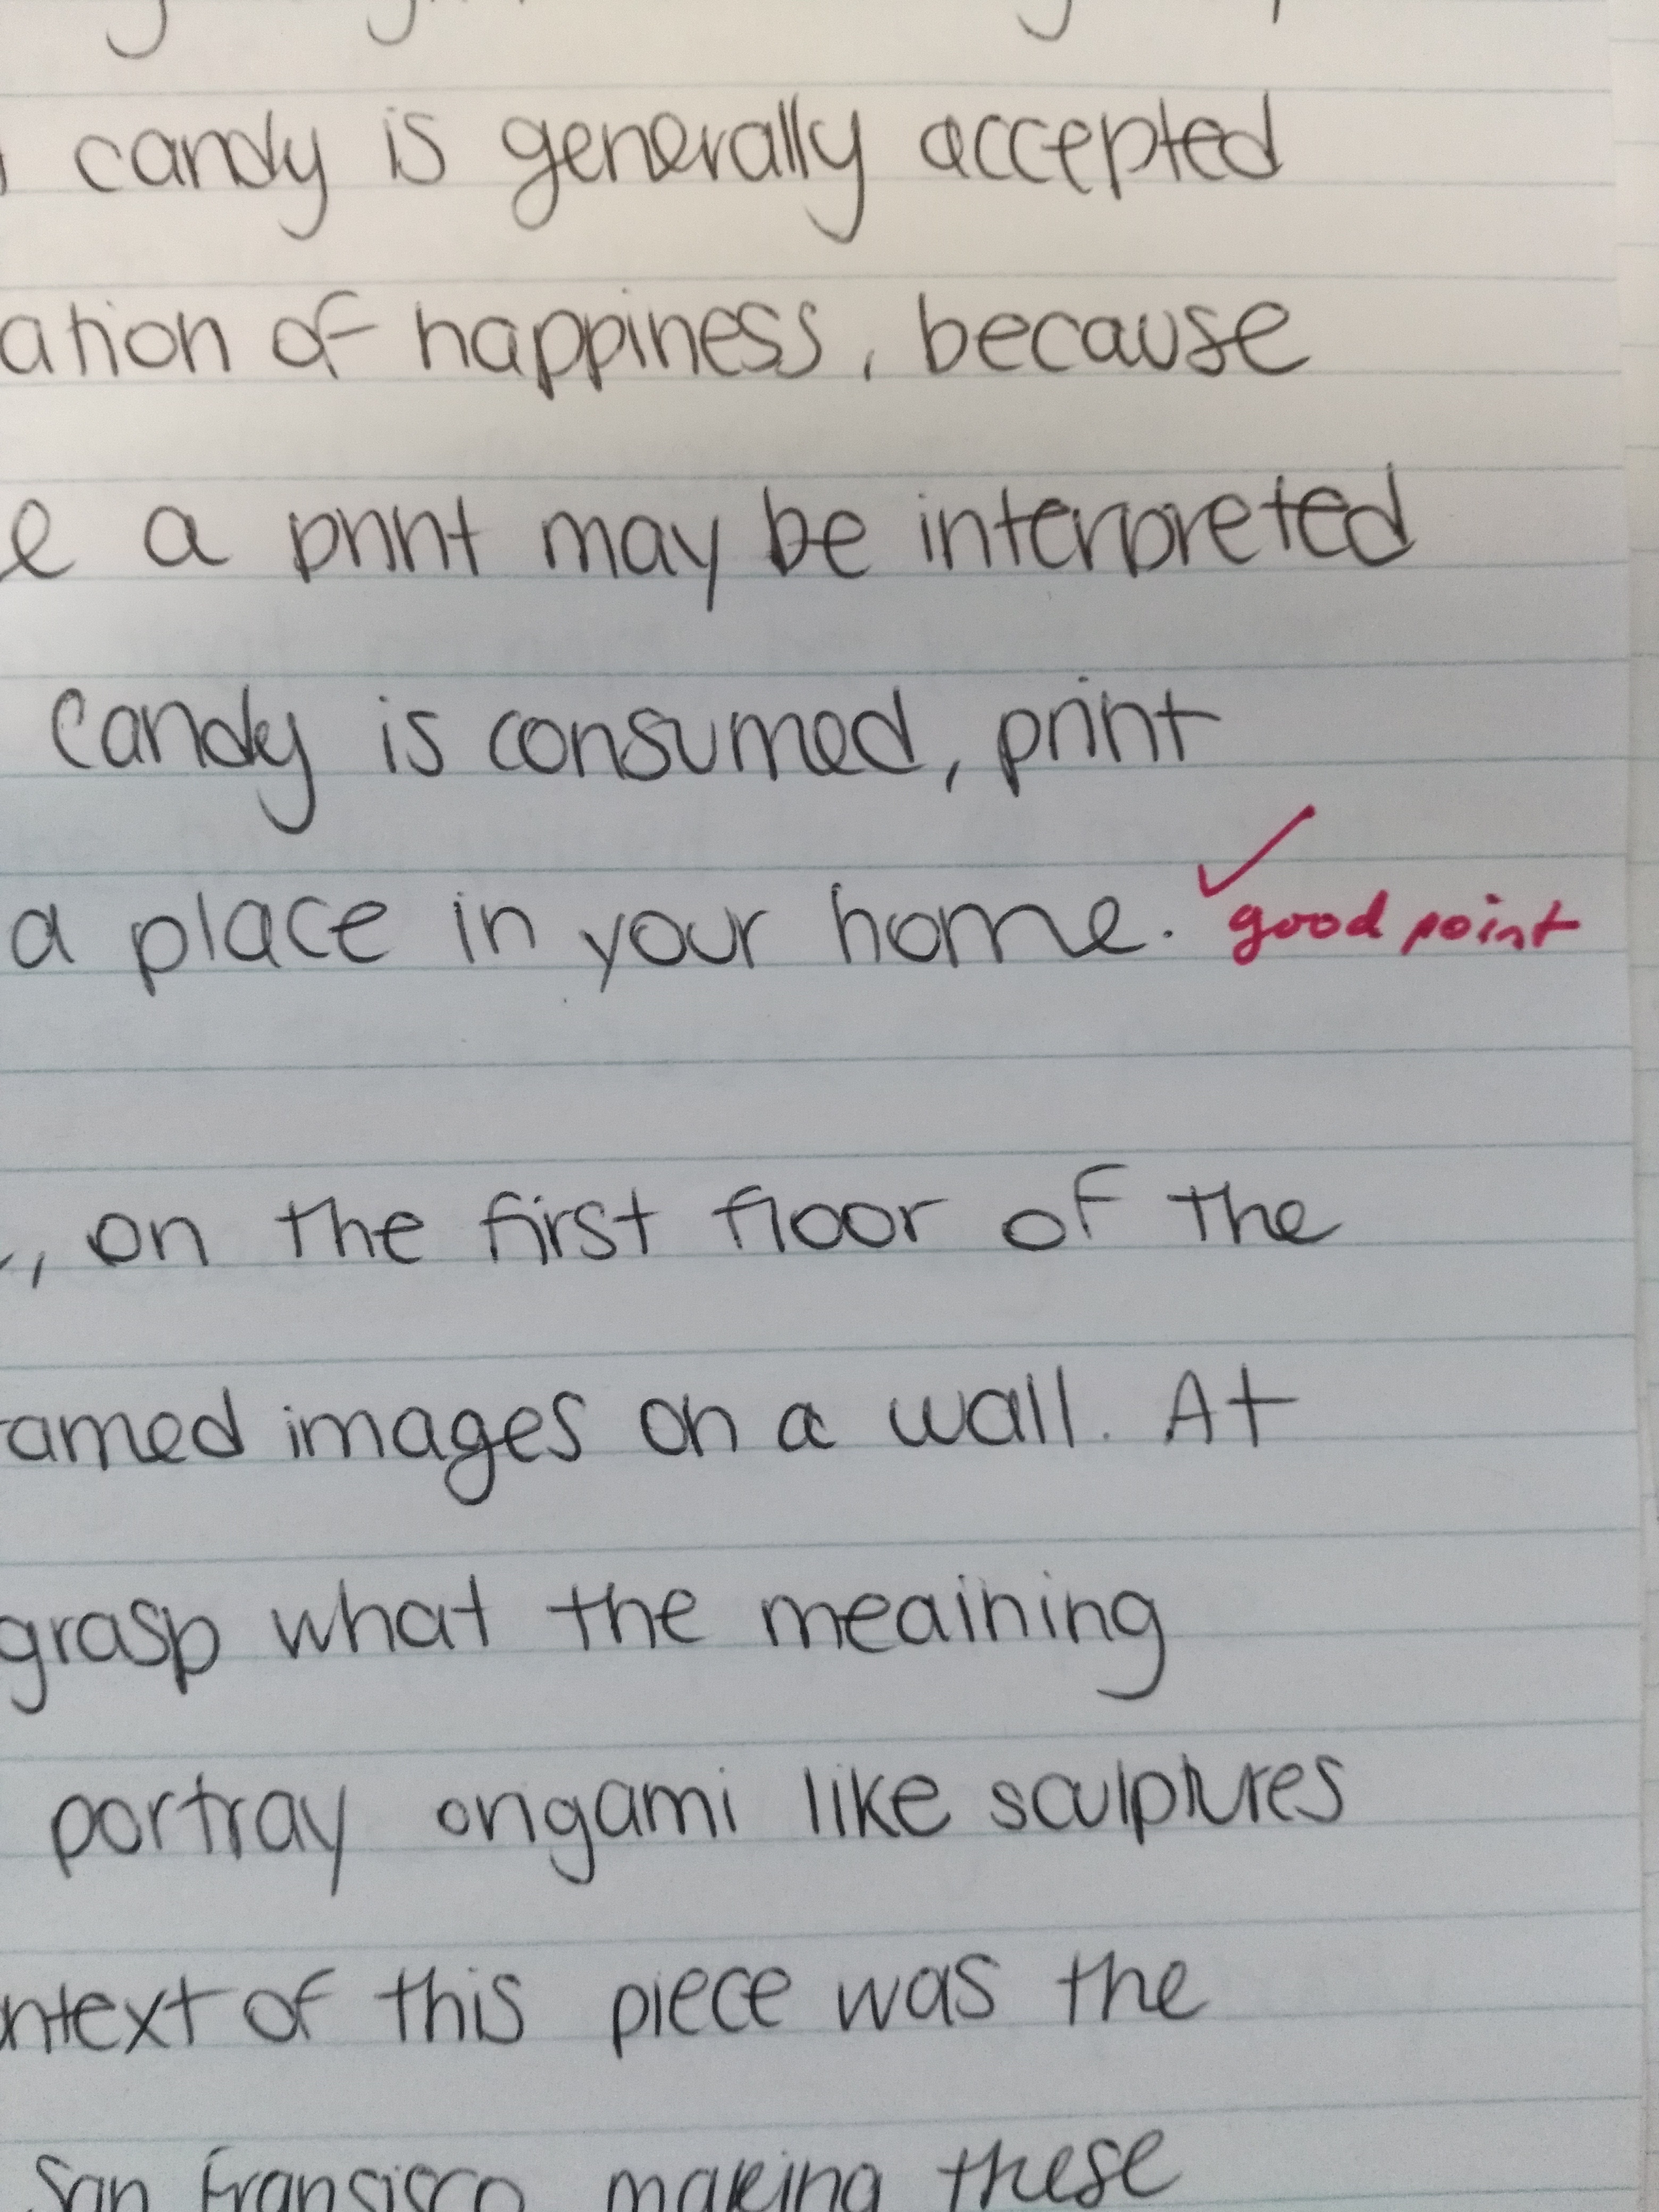 candy is generally accepted
ation of happiness, because
e a print may be interpreted
candy is consumed, print
a place in your home. good point
, on the first floor of the
amed images on a wall. At
grasp what the meaining
portray origami like sculptures
ntext of this piece was the
San Fransisco making these